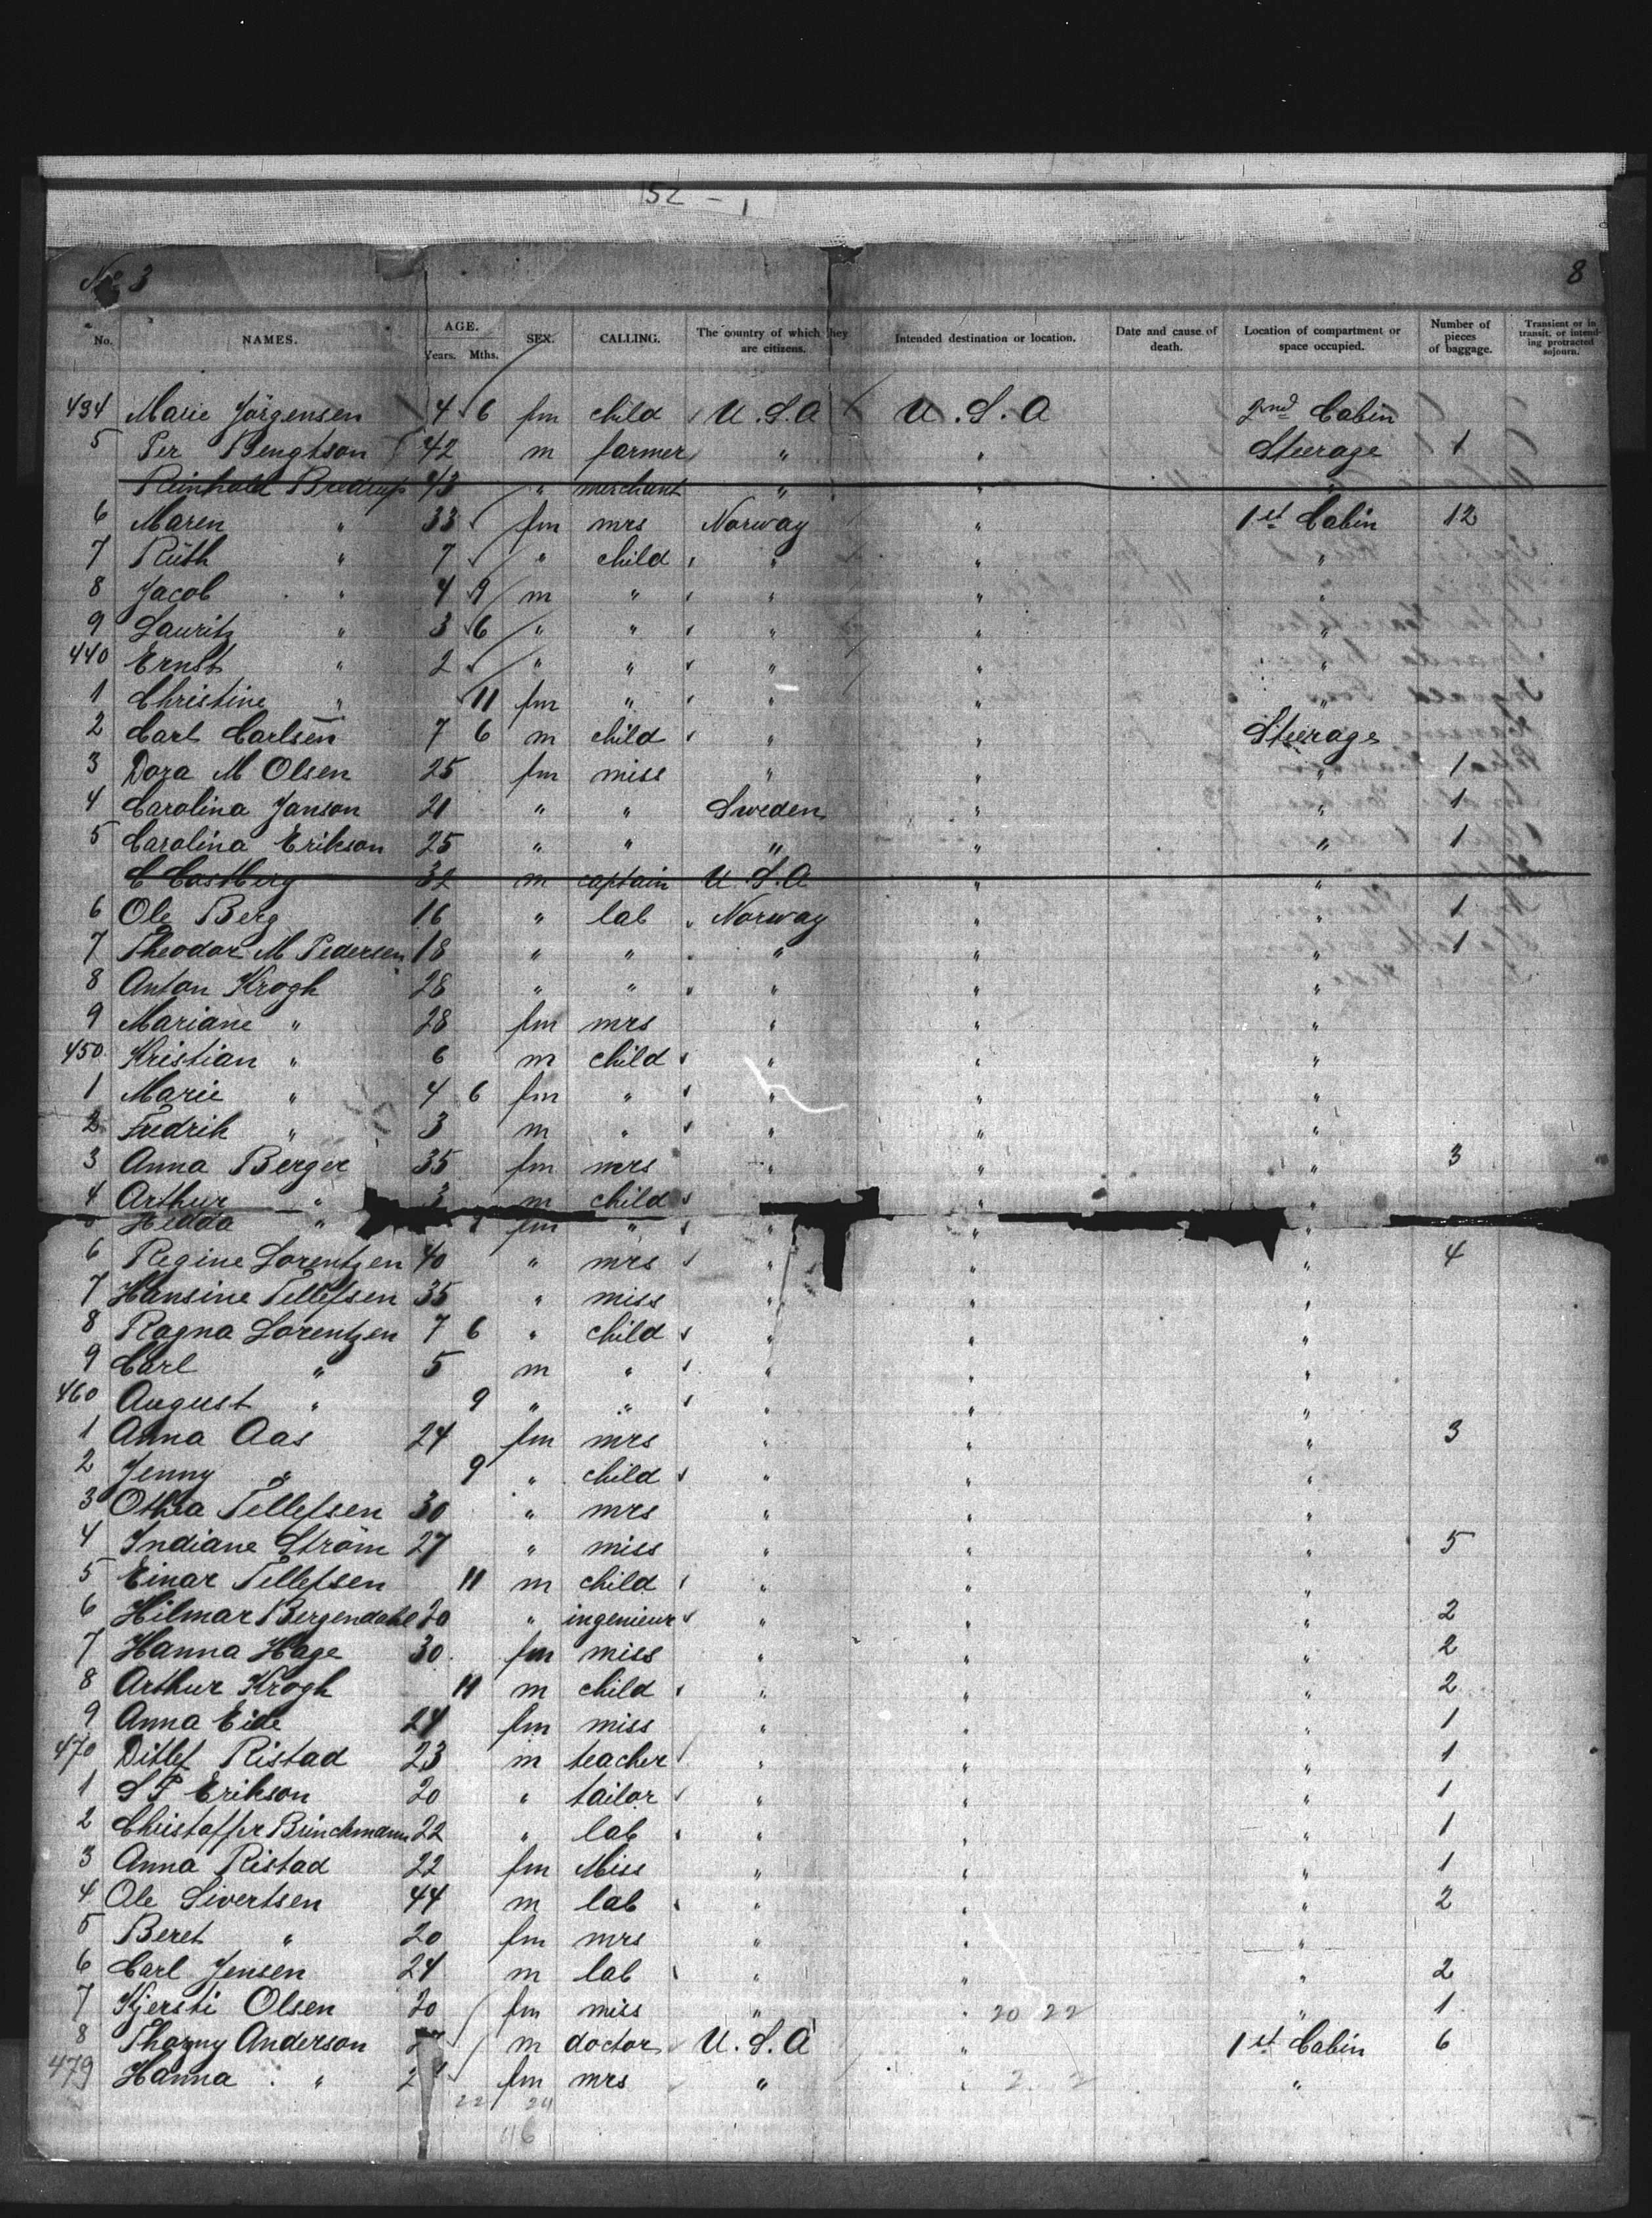 152 - 1
No 3 8
No. NAMES. AGE. Years. Mths. SEX. CALLING. The country of which they are citizens. Intended destination or location. Date and cause of death. Location of compartment or space occupied. Number of pieces of baggage. Transient or in transit, or intending protracted sojourn.
434 Marie Jörgensen 4 6 fm child U.S.A U.S.A 2nd Cabin
5 Per Bengtson 42 m farmer " " Steerage 1
Reinhold Bredrup 43 " merchant " " "
6 Maren " 33 fm mrs Norway " 1st Cabin 12
7 Ruth " 7 " child " " "
8 Jacob " 4 9 m " " " "
9 Lauritz " 3 6 " " " " "
440 Ernst " 2 " " " " "
1 Christine " 11 fm " " " "
2 Carl Carlsen 7 6 m child " " Steerage
3 Dora M Olsen 25 fm miss " " " 1
4 Carolina Janson 21 " " Sweden " " 1
5 Carolina Erikson 25 " " " " " 1
C Castberg 32 m captain U.S.A " "
6 Ole Berg 16 " lab Norway " " 1
7 Theodor M Pedersen 18 " " " " " 1
8 Anton Krogh 28 " " " " "
9 Mariane " 28 fm mrs " " "
450 Kristian " 6 m child " " "
1 Marie " 4 6 fm " " " "
2 Fredrik " 3 m " " " "
3 Anna Berger 35 fm mrs " " " 3
4 Arthur " 3 m child " "
Hedda " fm " " " "
6 Regine Lorentzen 40 " mrs " " " 4
7 Hansine Tellefsen 35 " miss " " "
8 Ragna Lorentzen 7 6 " child " " "
9 Carl " 5 m " " " "
460 August " 9 " " " " "
1 Anna Aas 24 fm mrs " " " 3
2 Jenny " 9 " child " " "
3 Othea Tellefsen 30 " mrs " " "
4 Indiane Ström 27 " miss " " " 5
5 Einar Tellefsen 11 m child " " "
6 Hilmar Bergendahl 20 " ingenieur " " " 2
7 Hanna Hage 30 fm miss " " " 2
8 Arthur Krogh 11 m child " " " 2
9 Anna Eide 24 fm miss " " " 1
470 Ditlef Ristad 23 m teacher " " " 1
1 S P Erikson 20 " tailor " " " 1
2 Christoffer Brinchmann 22 " lab " " " 1
3 Anna Ristad 22 fm Miss " " " 1
4 Ole Sivertsen 44 m lab " " " 2
5 Beret " 20 fm mrs " " "
6 Carl Jensen 24 m lab " " " 2
7 Kjersti Olsen 20 fm miss " " 20 22 " 1
8 Thorny Anderson m doctor U.S.A " 1st Cabin 6
479 Hanna " fm mrs " " 2 2 "
22 24
46